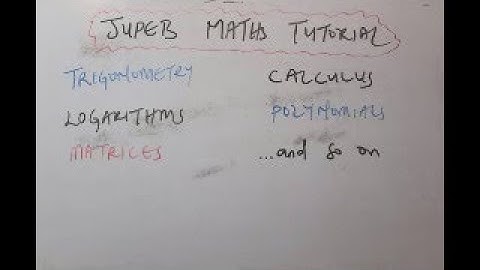 JUPEB MATHS TUTORIAL
TRIGONOMETRY CALCULUS
LOGARITHMS POLYNOMIALS
MATRICES ...and so on